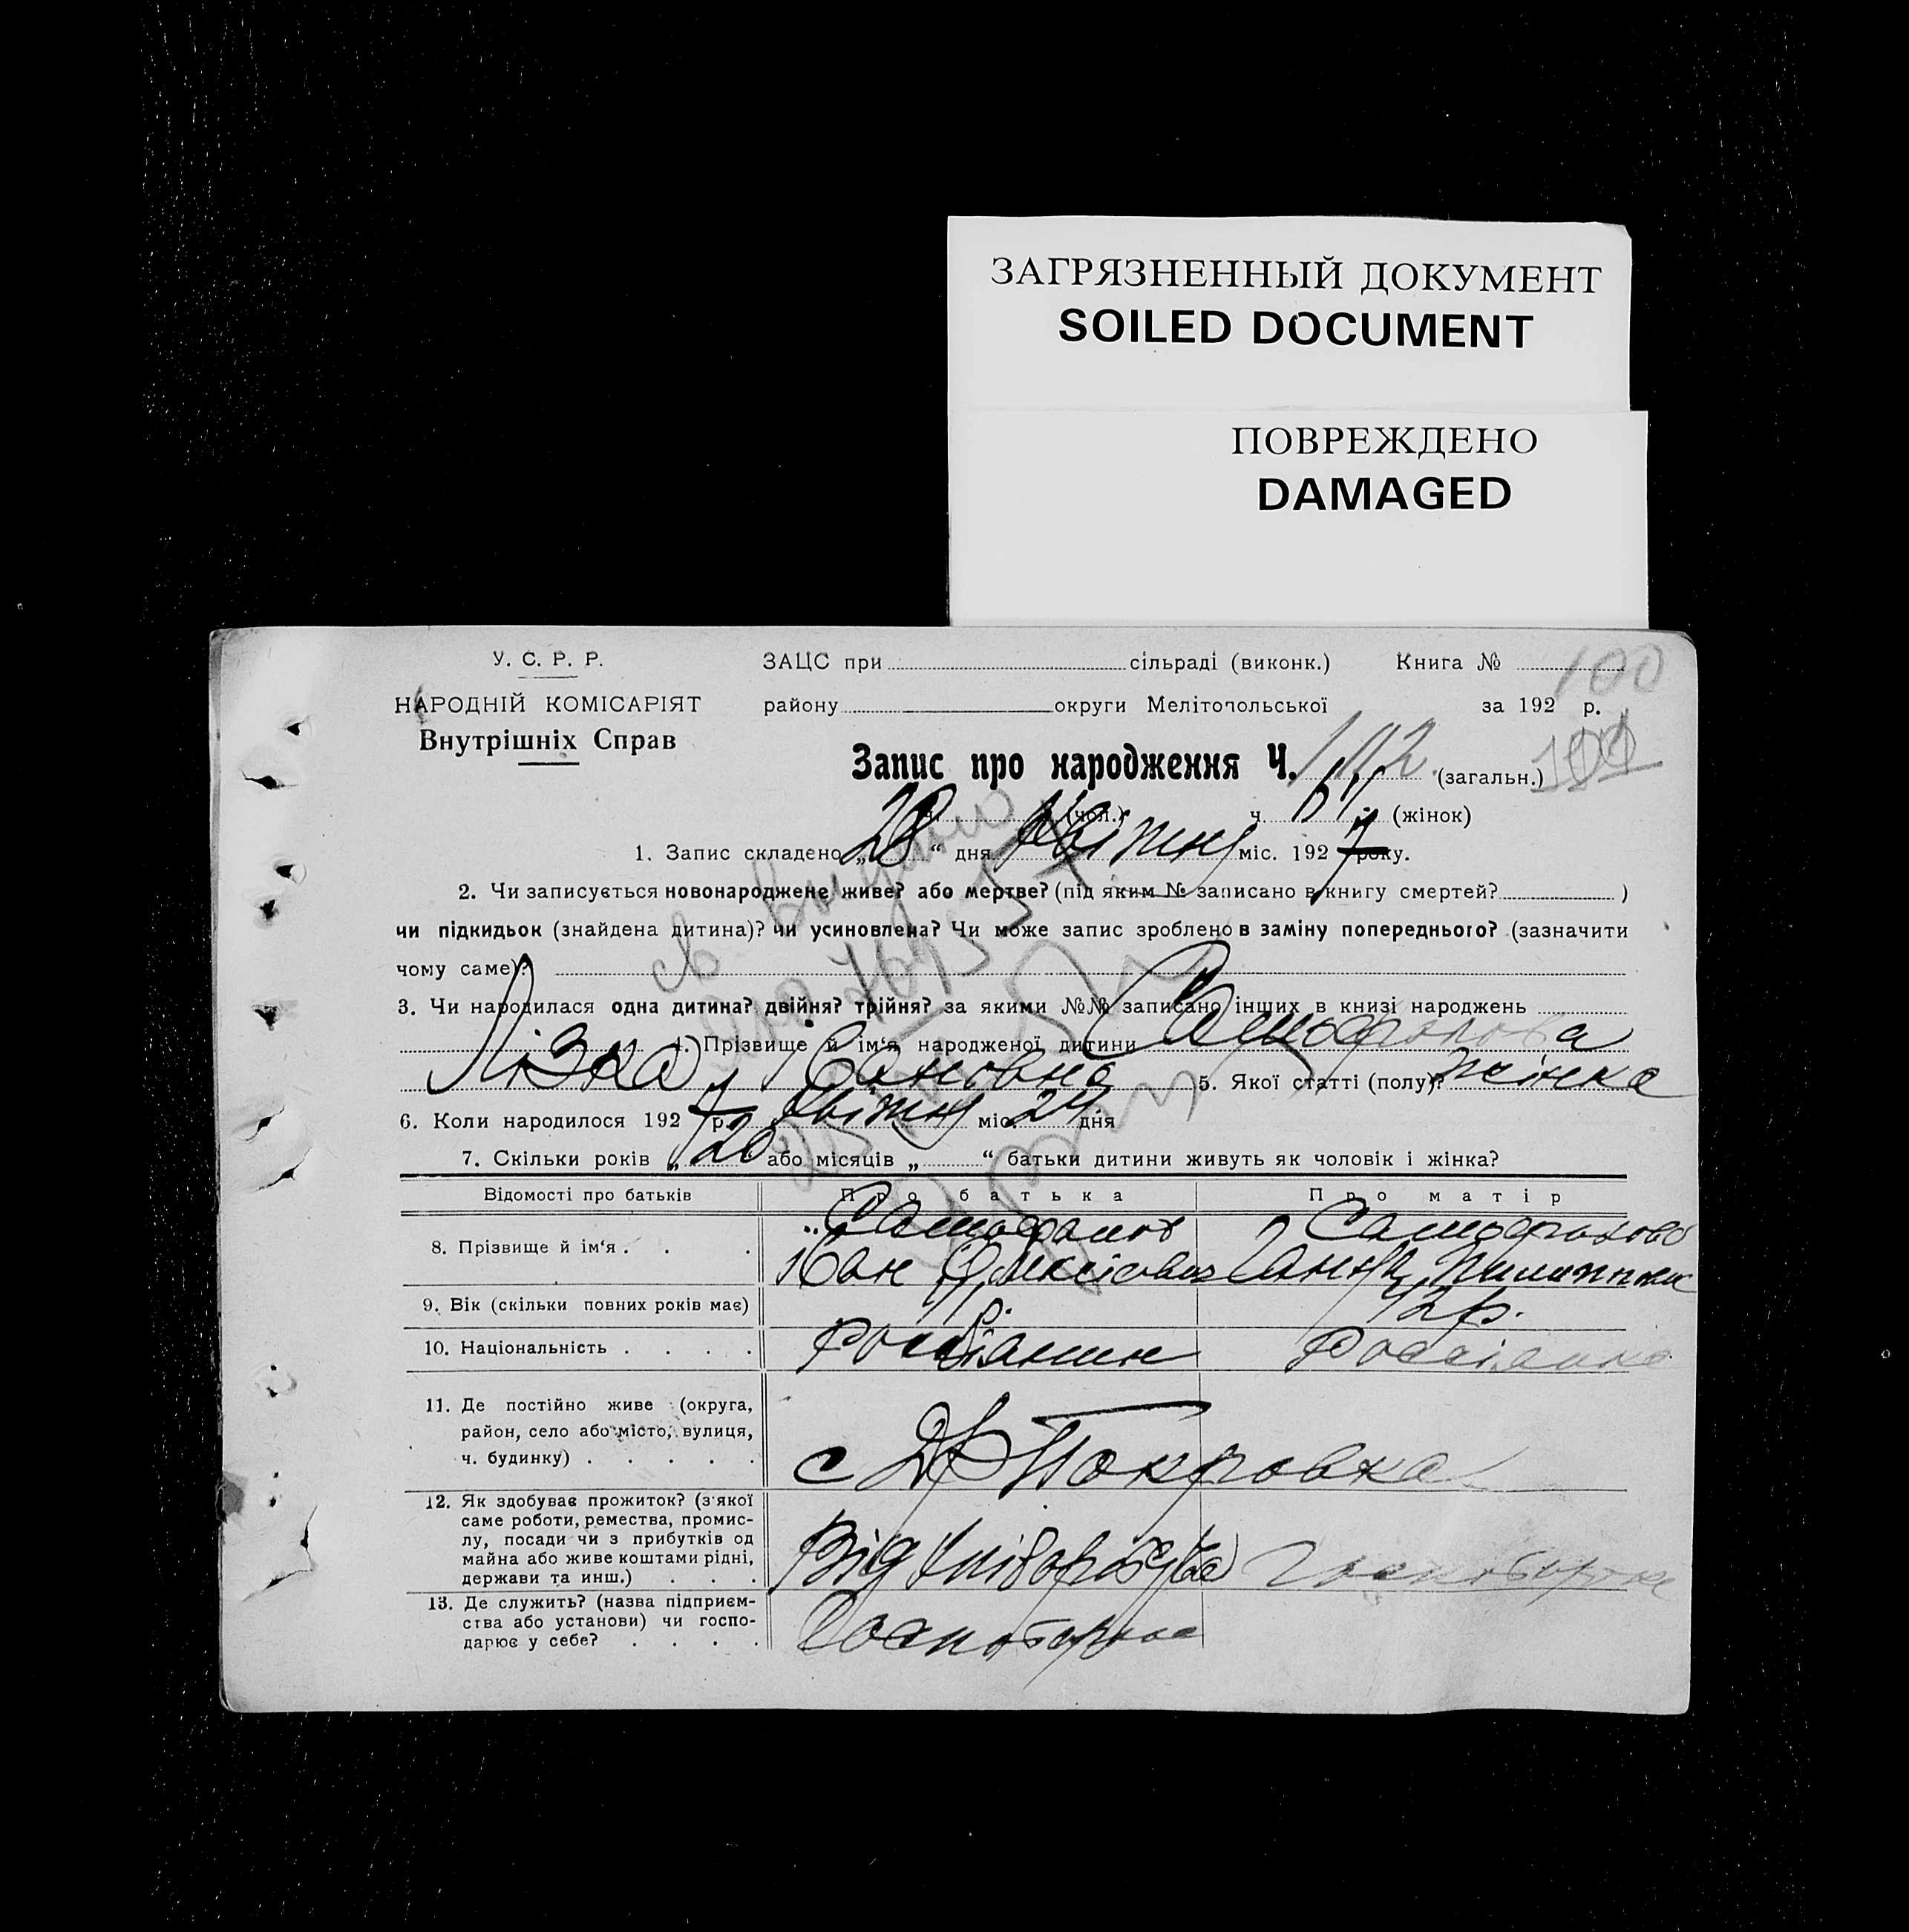 ЗАГРЯЗНЕННЫЙ ДОКУМЕНТ
SOILED DOCUMENT
ПОВРЕЖДЕНО
DAMAGED
У. С. Р. Р.
НАРОДНІЙ КОМІСАРІЯТ
Внутрішніх Справ
ЗАЦС при сільраді (виконк.) Книга № 100
району округи Мелітопольської за 192 р.
Запис про народження Ч. 112 (загальн.)
(чол.) ч. (жінок)
1. Запис складено „28“ дня квітня міс. 1927 року.
2. Чи записується новонароджене живе? або мертве? (під яким № записано в книгу смертей? )
чи підкидьок (знайдена дитина)? чи усиновлена? Чи може запис зроблено в заміну попереднього? (зазначити
чому саме)?
3. Чи народилася одна дитина? двійня? трійня? за якими №№ записано інших в книзі народжень
4. Прізвище й ім'я народженої дитини Самофалова
Лізка Івановна 5. Якої статті (полу)? жінка
6. Коли народилося 1927 р. квітня міс. 24 дня
7. Скільки років „20 або місяців „ “ батьки дитини живуть як чоловік і жінка?
Відомості про батьків Про батька Про матір
8. Прізвище й ім'я . . . Самофалов Самофалова
Іван Олексієвич Ганна
9. Вік (скільки повних років має) 42 р.
10. Національність . . . . Россіянин Россіянка
11. Де постійно живе (округа,
район, село або місто, вулиця,
ч. будинку) . . . . . с Покровка
12. Як здобуває прожиток? (з якої
саме роботи, ремества, промис-
лу, посади чи з прибутків од
майна або живе коштами рідні,
держави та инш.) . . . Від хліборобства
13. Де служить? (назва підприєм-
ства або установи) чи госпо-
дарює у себе? . . . .